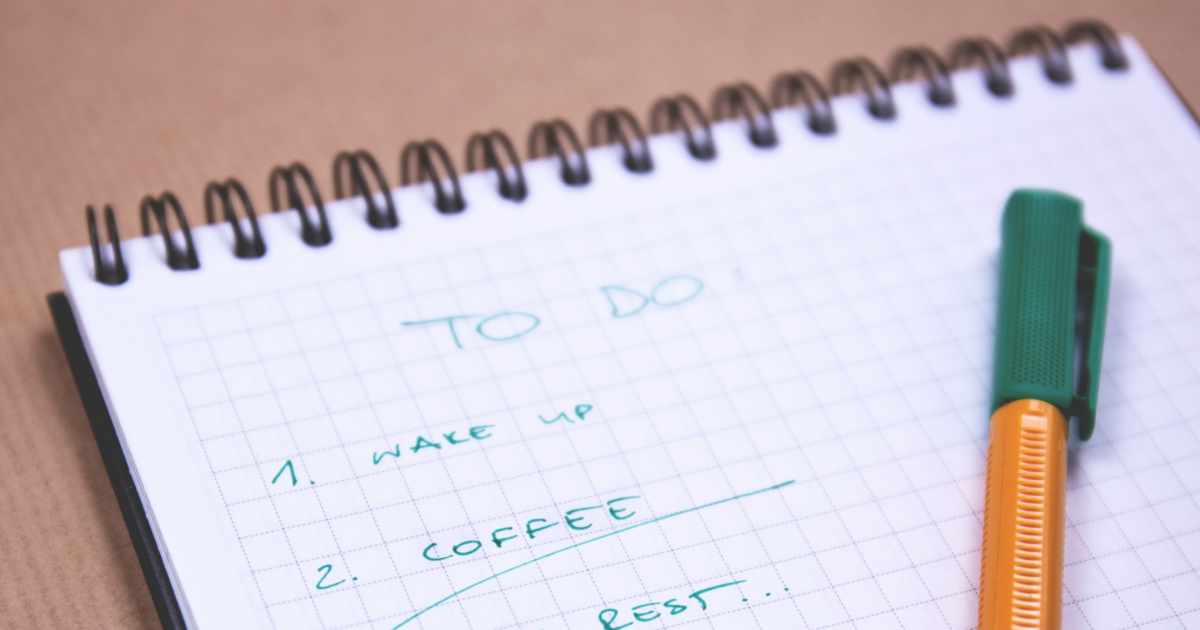 TO DO:
1. WAKE UP
2. COFFEE
REST...